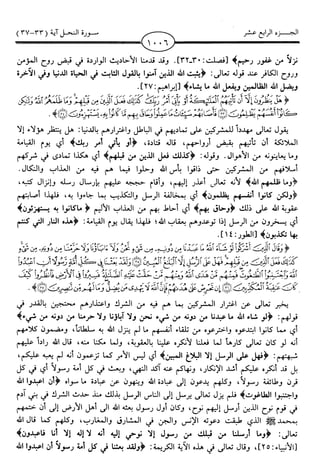 الجـــزء الرابع عشر
١٠٠٦
سـورة النحـل آية (٣٣-٣٧)
نزلاً من غفور رحيم﴾ [فصلت: ٣٠-٣٢]. وقد قدمنا الأحاديث الواردة في قبض روح المؤمن
وروح الكافر عند قوله تعالى: ﴿يثبت الله الذين آمنوا بالقول الثابت في الحياة الدنيا وفي الآخرة
ويضل الله الظالمين ويفعل الله ما يشاء﴾ [إبراهيم: ٢٧].
﴿هَلْ يَنظُرُونَ إِلَّا أَن تَأْتِيَهُمُ الْمَلَائِكَةُ أَوْ يَأْتِيَ أَمْرُ رَبِّكَ كَذَلِكَ فَعَلَ الَّذِينَ مِن قَبْلِهِمْ وَمَا ظَلَمَهُمُ اللَّهُ وَلَكِن
كَانُوا أَنفُسَهُمْ يَظْلِمُونَ ﴿٣٣﴾ فَأَصَابَهُمْ سَيِّئَاتُ مَا عَمِلُوا وَحَاقَ بِهِم مَّا كَانُوا بِهِ يَسْتَهْزِئُونَ ﴿٣٤﴾﴾.
يقول تعالى مهدداً للمشركين على تماديهم في الباطل واغترارهم بالدنيا: هل ينتظر هؤلاء إلا
الملائكة أن تأتيهم بقبض أرواحهم، قاله قتادة، ﴿أو يأتي أمر ربك﴾ أي يوم القيامة
وما يعاينونه من الأهوال. وقوله: ﴿كذلك فعل الذين من قبلهم﴾ أي هكذا تمادى في شركهم
أسلافهم من المشركين حتى ذاقوا بأس الله وحلوا فيما هم فيه من العذاب والنكال.
﴿وما ظلمهم الله﴾ لأنه تعالى أعذر إليهم، وأقام حججه عليهم بإرسال رسله وإنزال كتبه،
﴿ولكن كانوا أنفسهم يظلمون﴾ أي بمخالفة الرسل والتكذيب بما جاءوا به، فلهذا أصابتهم
عقوبة الله على ذلك ﴿وحاق بهم﴾ أي أحاط بهم من العذاب الأليم ﴿ما كانوا به يستهزئون﴾
أي يسخرون من الرسل إذا توعدوهم بعقاب الله؛ فلهذا يقال يوم القيامة: ﴿هذه النار التي كنتم
بها تكذبون﴾ [الطور: ١٤].
﴿وَقَالَ الَّذِينَ أَشْرَكُوا لَوْ شَاءَ اللَّهُ مَا عَبَدْنَا مِن دُونِهِ مِن شَيْءٍ نَّحْنُ وَلَا آبَاؤُنَا وَلَا حَرَّمْنَا مِن دُونِهِ مِن شَيْءٍ
كَذَلِكَ فَعَلَ الَّذِينَ مِن قَبْلِهِمْ فَهَلْ عَلَى الرُّسُلِ إِلَّا الْبَلَاغُ الْمُبِينُ ﴿٣٥﴾ وَلَقَدْ بَعَثْنَا فِي كُلِّ أُمَّةٍ رَّسُولًا أَنِ اعْبُدُوا
اللَّهَ وَاجْتَنِبُوا الطَّاغُوتَ فَمِنْهُم مَّنْ هَدَى اللَّهُ وَمِنْهُم مَّنْ حَقَّتْ عَلَيْهِ الضَّلَالَةُ فَسِيرُوا فِي الْأَرْضِ فَانظُرُوا كَيْفَ
كَانَ عَاقِبَةُ الْمُكَذِّبِينَ ﴿٣٦﴾ إِن تَحْرِصْ عَلَى هُدَاهُمْ فَإِنَّ اللَّهَ لَا يَهْدِي مَن يُضِلُّ وَمَا لَهُم مِّن نَّاصِرِينَ ﴿٣٧﴾﴾.
يخبر تعالى عن اغترار المشركين بما هم فيه من الشرك واعتذارهم محتجين بالقدر في
قولهم: ﴿لو شاء الله ما عبدنا من دونه من شيء نحن ولا آباؤنا ولا حرمنا من دونه من شيء﴾
أي مما كانوا ابتدعوه واخترعوه من تلقاء أنفسهم ما لم ينزل الله به سلطاناً، ومضمون كلامهم
أنه لو كان تعالى كارهاً لما فعلنا لأنكره علينا بالعقوبة، ولما مكننا منه، قال الله راداً عليهم
شبهتهم: ﴿فهل على الرسل إلا البلاغ المبين﴾ أي ليس الأمر كما تزعمون أنه لم يعبه عليكم،
بل قد أنكره عليكم أشد الإنكار، ونهاكم عنه آكد النهي، وبعث في كل أمة رسولاً أي في كل
قرن وطائفة رسولاً، وكلهم يدعون إلى عبادة الله وينهون عن عبادة ما سواه ﴿أن اعبدوا الله
واجتنبوا الطاغوت﴾ فلم يزل تعالى يرسل إلى الناس الرسل بذلك منذ حدث الشرك في بني آدم
في قوم نوح الذين أرسل إليهم نوح، وكان أول رسول بعثه الله إلى أهل الأرض إلى أن ختمهم
بمحمد ﷺ الذي طبقت دعوته الإنس والجن في المشارق والمغارب، وكلهم كما قال الله
تعالى: ﴿وما أرسلنا من قبلك من رسول إلا نوحي إليه أنه لا إله إلا أنا فاعبدون﴾
[الأنبياء: ٢٥]، وقال تعالى في هذه الآية الكريمة: ﴿ولقد بعثنا في كل أمة رسولاً أن اعبدوا الله